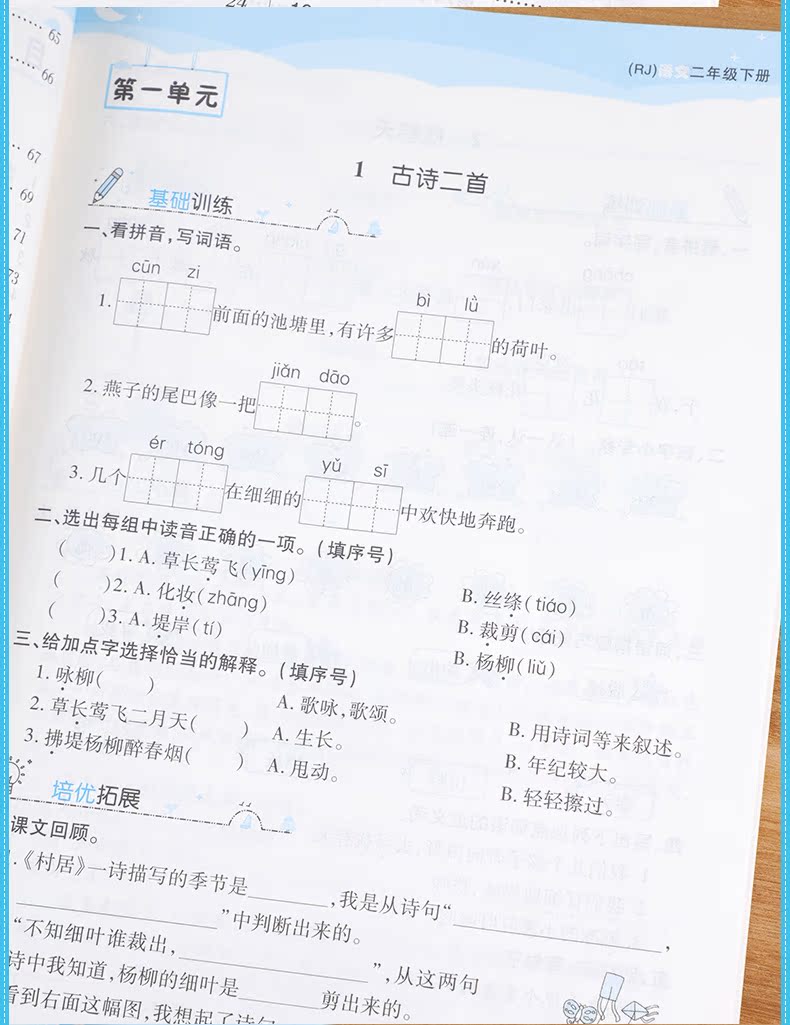 24
65
66
67
69
71
73
(RJ)语文二年级下册
第一单元
1 古诗二首
基础训练
一、看拼音,写词语。
cūn zi bì lǜ
1. 前面的池塘里,有许多 的荷叶。
jiǎn dāo
2. 燕子的尾巴像一把 。
ér tóng yǔ sī
3. 几个 在细细的 中欢快地奔跑。
二、选出每组中读音正确的一项。(填序号)
( )1. A. 草长莺飞(yīng) B. 丝绦(tiáo)
( )2. A. 化妆(zhāng) B. 裁剪(cái)
( )3. A. 堤岸(tí) B. 杨柳(liǔ)
三、给加点字选择恰当的解释。(填序号)
1. 咏柳( ) A. 歌咏,歌颂。 B. 用诗词等来叙述。
2. 草长莺飞二月天( ) A. 生长。 B. 年纪较大。
3. 拂堤杨柳醉春烟( ) A. 甩动。 B. 轻轻擦过。
培优拓展
课文回顾。
《村居》一诗描写的季节是________,我是从诗句“________________,
________________”中判断出来的。
“不知细叶谁裁出,________________”,从这两句
诗中我知道,杨柳的细叶是________剪出来的。
看到右面这幅图,我想起了诗句